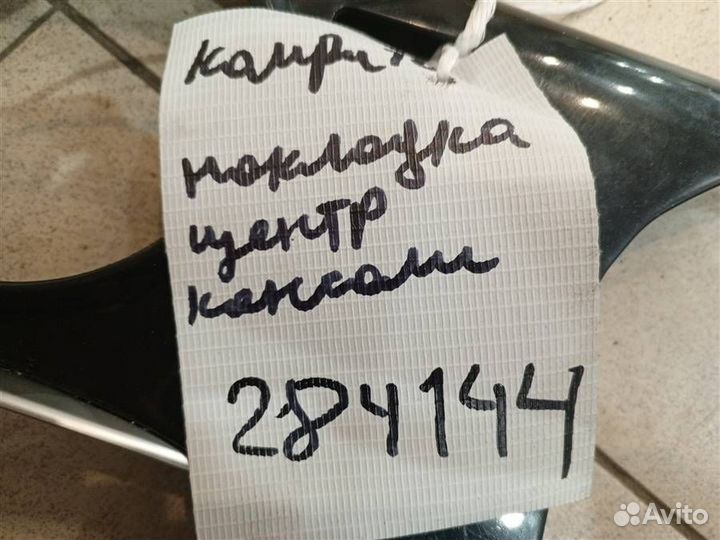 камри
накладка
центр
консоли
284144
Avito